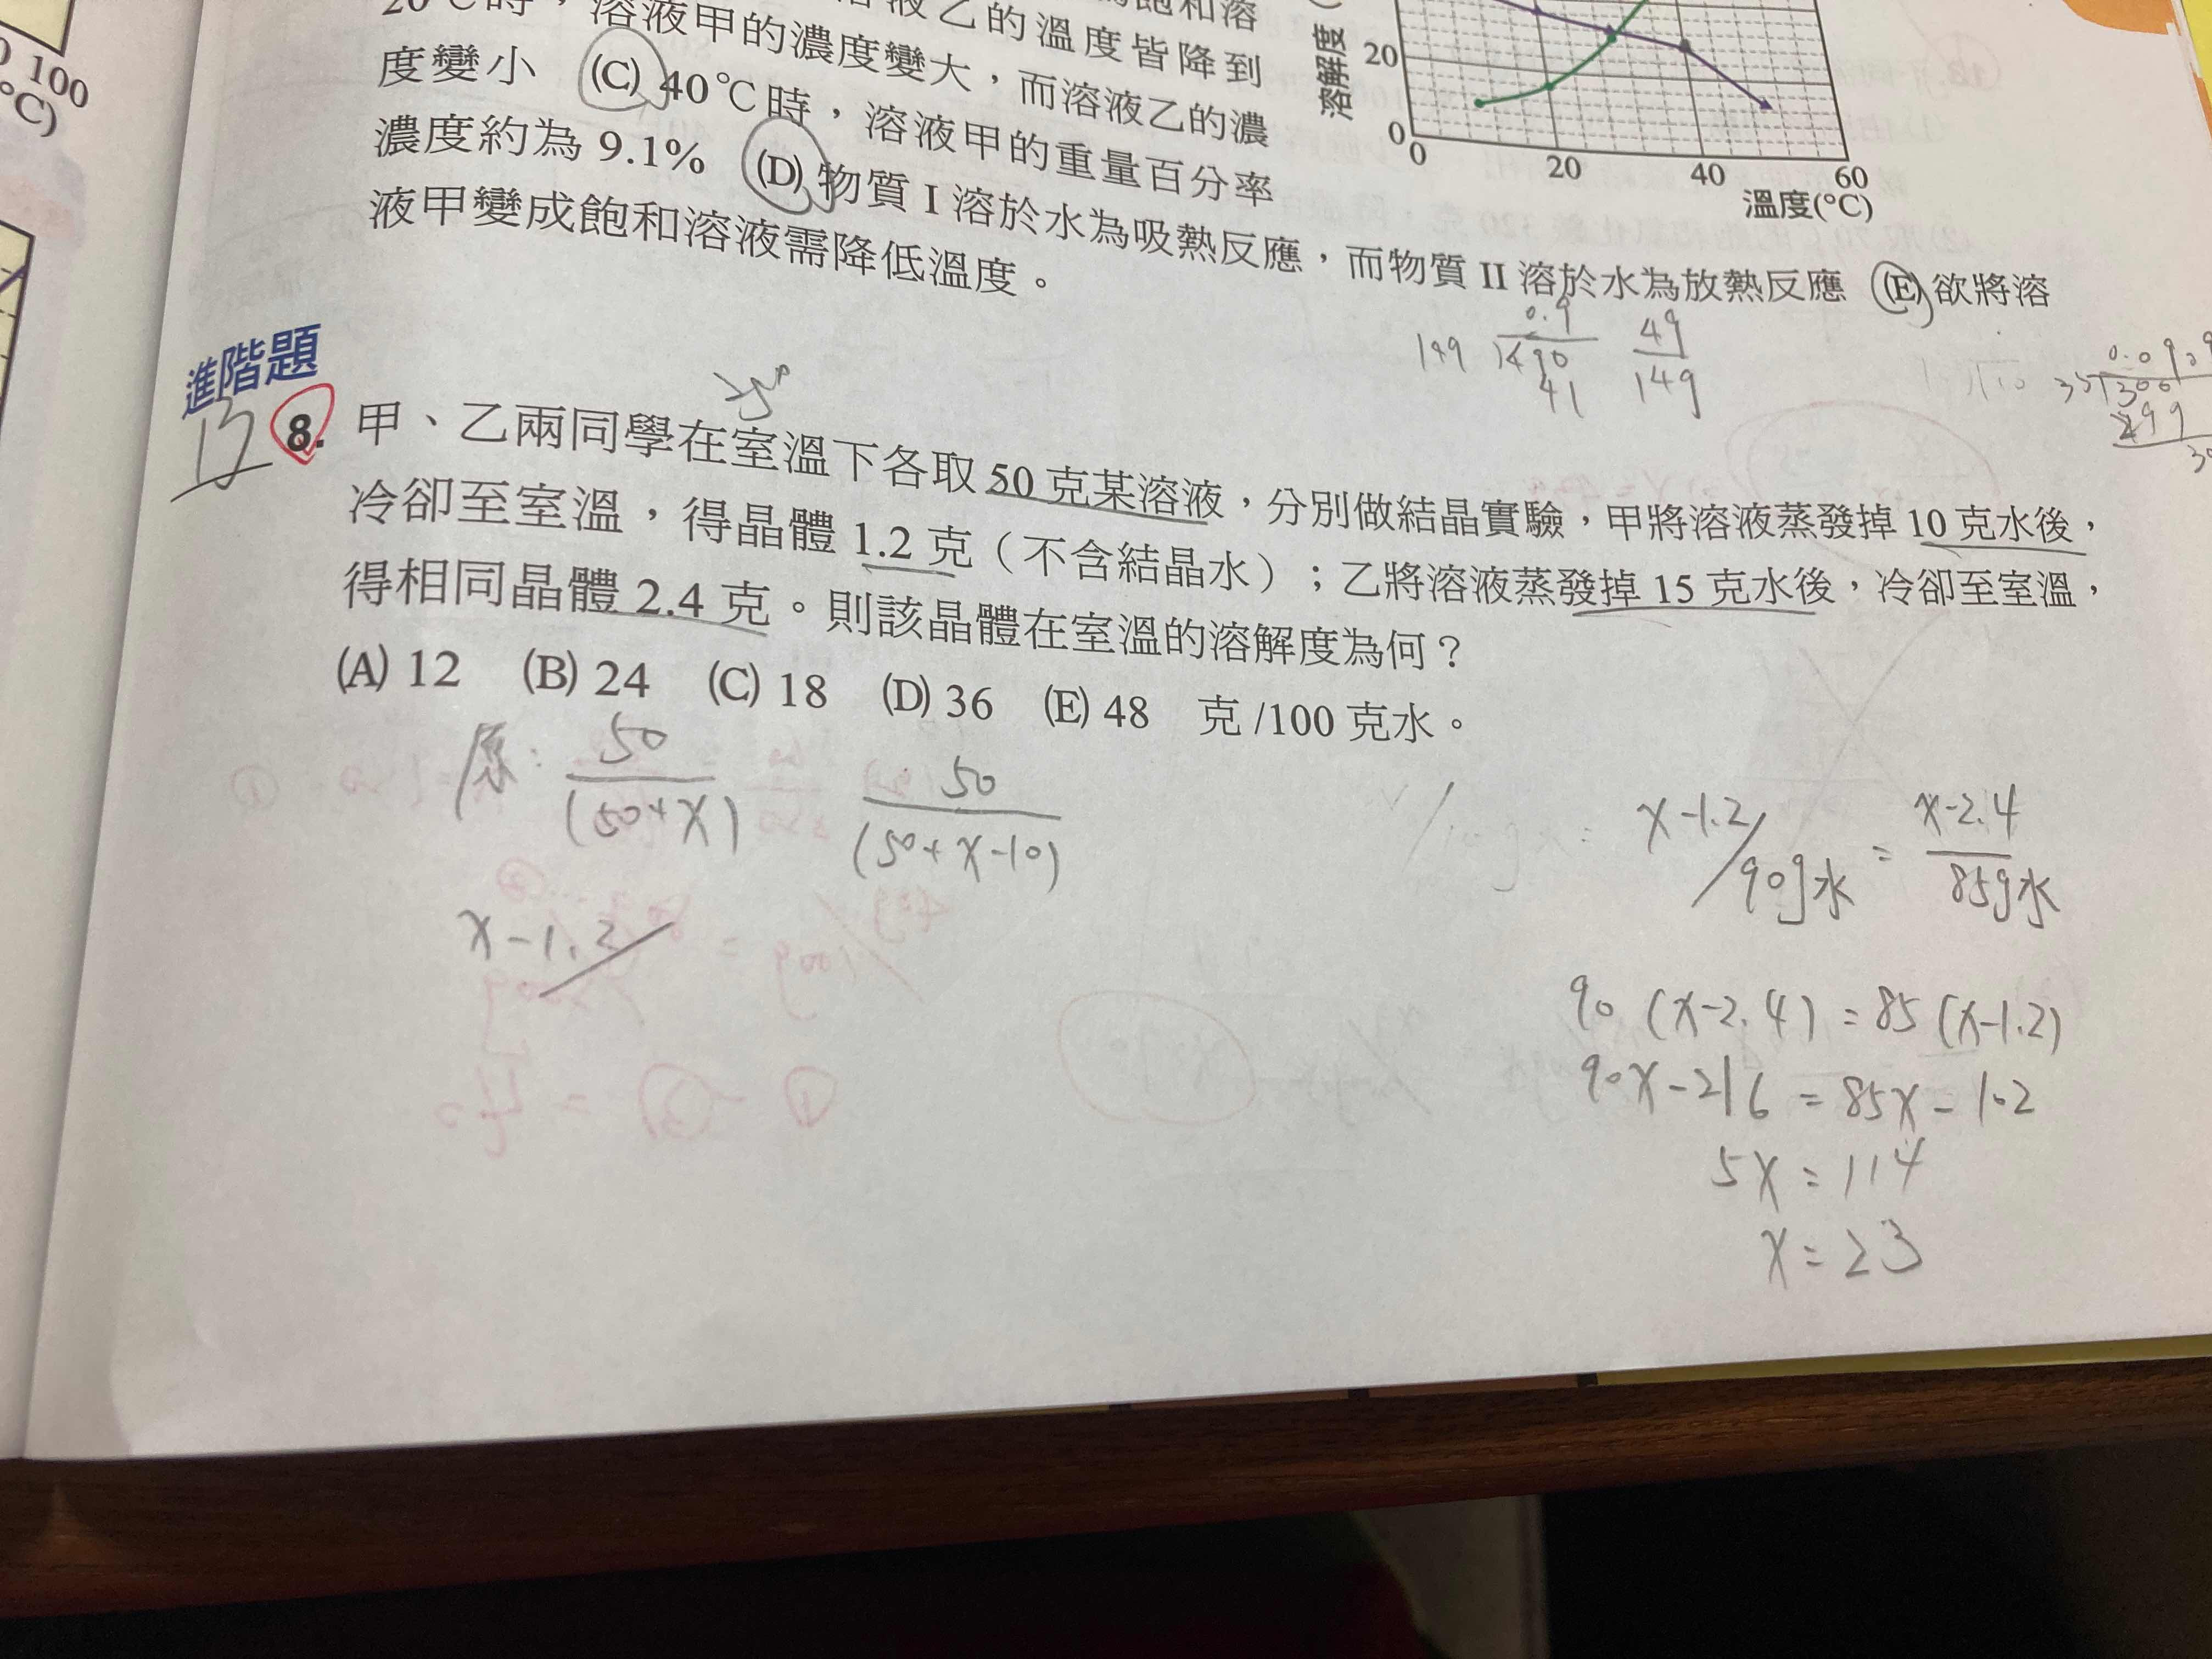 100
(°C)
20℃時，溶液乙的溫度皆降到
溶液甲的濃度變大，而溶液乙的濃
度變小 (C) 40℃時，溶液甲的重量百分率
濃度約為 9.1% (D) 物質 I 溶於水為吸熱反應，而物質 II 溶於水為放熱反應 (E) 欲將溶
液甲變成飽和溶液需降低溫度。
溶解度
20
0
0 20 40 60
溫度(°C)
0.9
149 490
41
49
149
進階題
8. 甲、乙兩同學在室溫下各取 50 克某溶液，分別做結晶實驗，甲將溶液蒸發掉 10 克水後，
冷卻至室溫，得晶體 1.2 克（不含結晶水）；乙將溶液蒸發掉 15 克水後，冷卻至室溫，
得相同晶體 2.4 克。則該晶體在室溫的溶解度為何？
(A) 12 (B) 24 (C) 18 (D) 36 (E) 48 克 /100 克水。
原: 50
(50+X)
50
(50+X-10)
X-1.2
X-1.2/90g水 = X-2.4
85g水
90 (X-2.4) = 85 (X-1.2)
90X-216 = 85X-102
5X = 114
X = 23